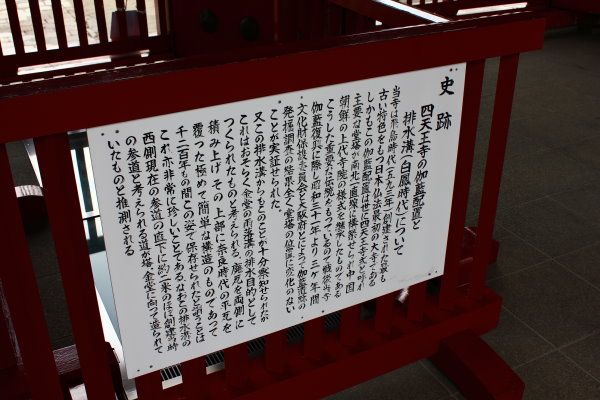 史跡
四天王寺の伽藍配置と
排水溝(白鳳時代)について
当寺は飛鳥時代(五九三年)創建された最も
古い特色をもつ日本仏法最初の大寺である
しかもこの伽藍配置は世に四天王寺式と呼ばれ
主要な堂塔が南北一直線に構築せられ中国
朝鮮の上代寺院の様式を継承したものである
こうした重要な伝統をもっているので戦後当寺
伽藍復興に際し昭和三十一年より三ヶ年間
文化財保護委員会と大阪府とによって伽藍遺跡の
発掘調査の結果全く堂塔の位置に変化のない
ことが実証せられた。
又この排水溝からもこのことが十分察知せられたが
これはおそらく金堂の雨落溝の排水目的として
つくられたものと考えられる。鹿瓦を両側に
積み上げ その上部に奈良時代の平瓦を
覆った極めて簡単な構造のものであって
千二百年もの間この姿で保存せられたと言うことは
これ亦非常に珍しいことであるなおこの排水溝の
西側現在の参道の直下に約二米のほど創建当時
の参道と考えられる道が塔、金堂に向って造られて
いたものと推測される